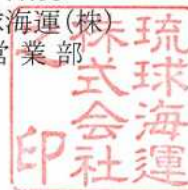 球海運(株)
営業部
琉球海運
株式会社
之印